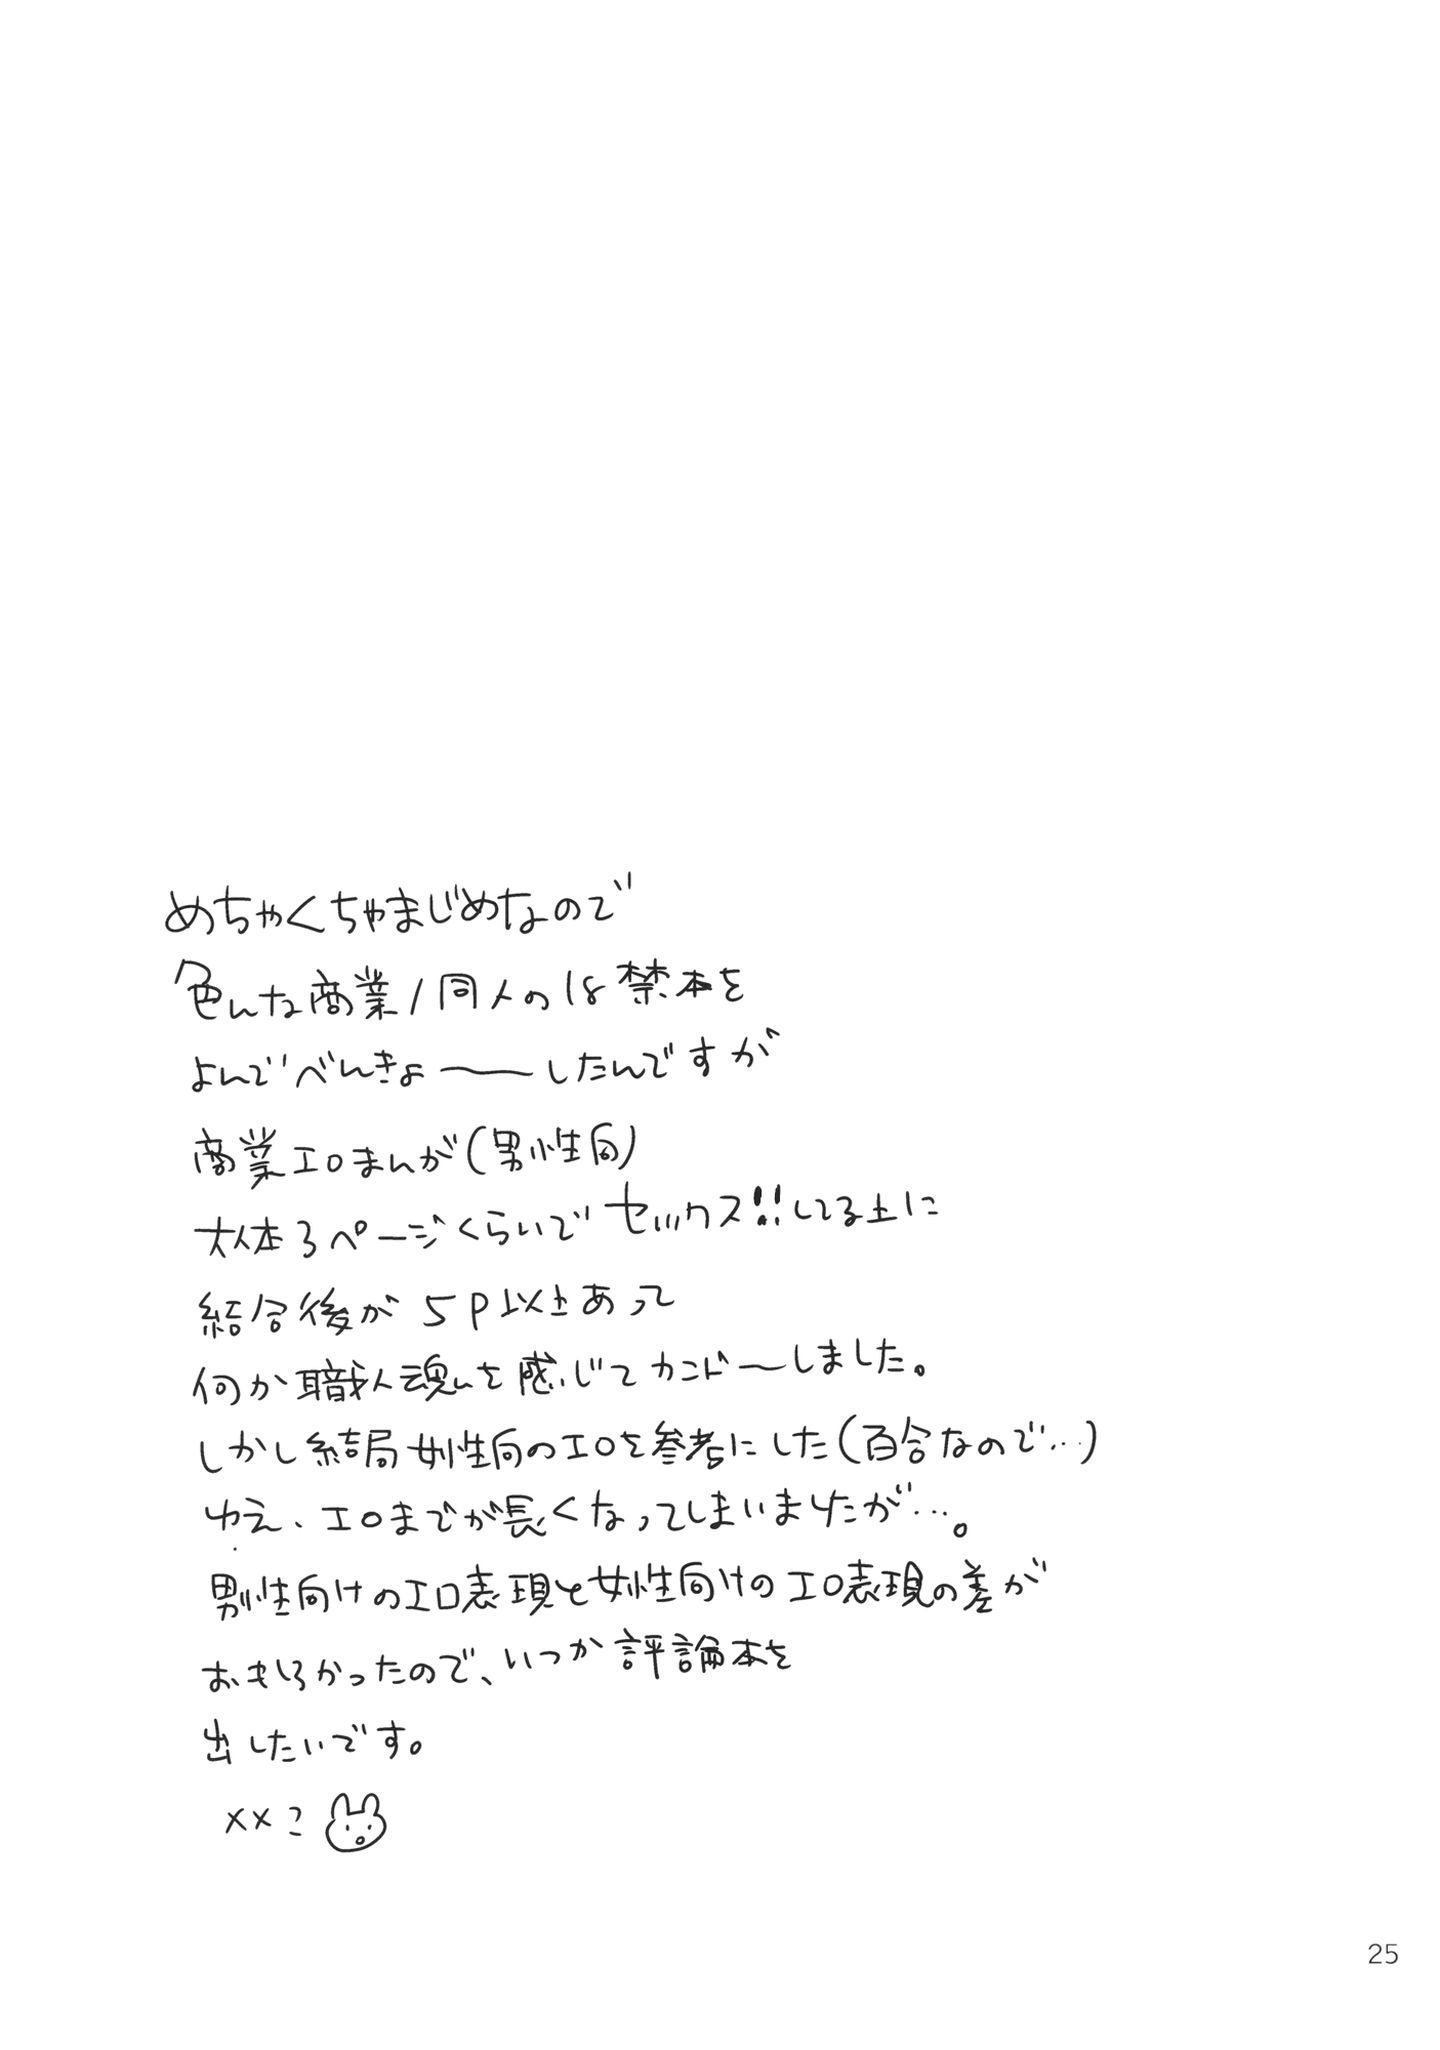 めちゃくちゃまじめなので
色んな商業/同人の18禁本を
よんでべんきょ〜〜したんですが
商業エロまんが(男性向)
大体3ページくらいでセックス!!してる上に
結合後が5P以上あって
何か職人魂を感じてカンドーしました。
しかし結局女性向のエロを参考にした(百合なので…)
ゆえ、エロまでが長くなってしまいましたが…。
男性向けのエロ表現と女性向けのエロ表現の差が
おもしろかったので、いつか評論本を
出したいです。
××こ
25